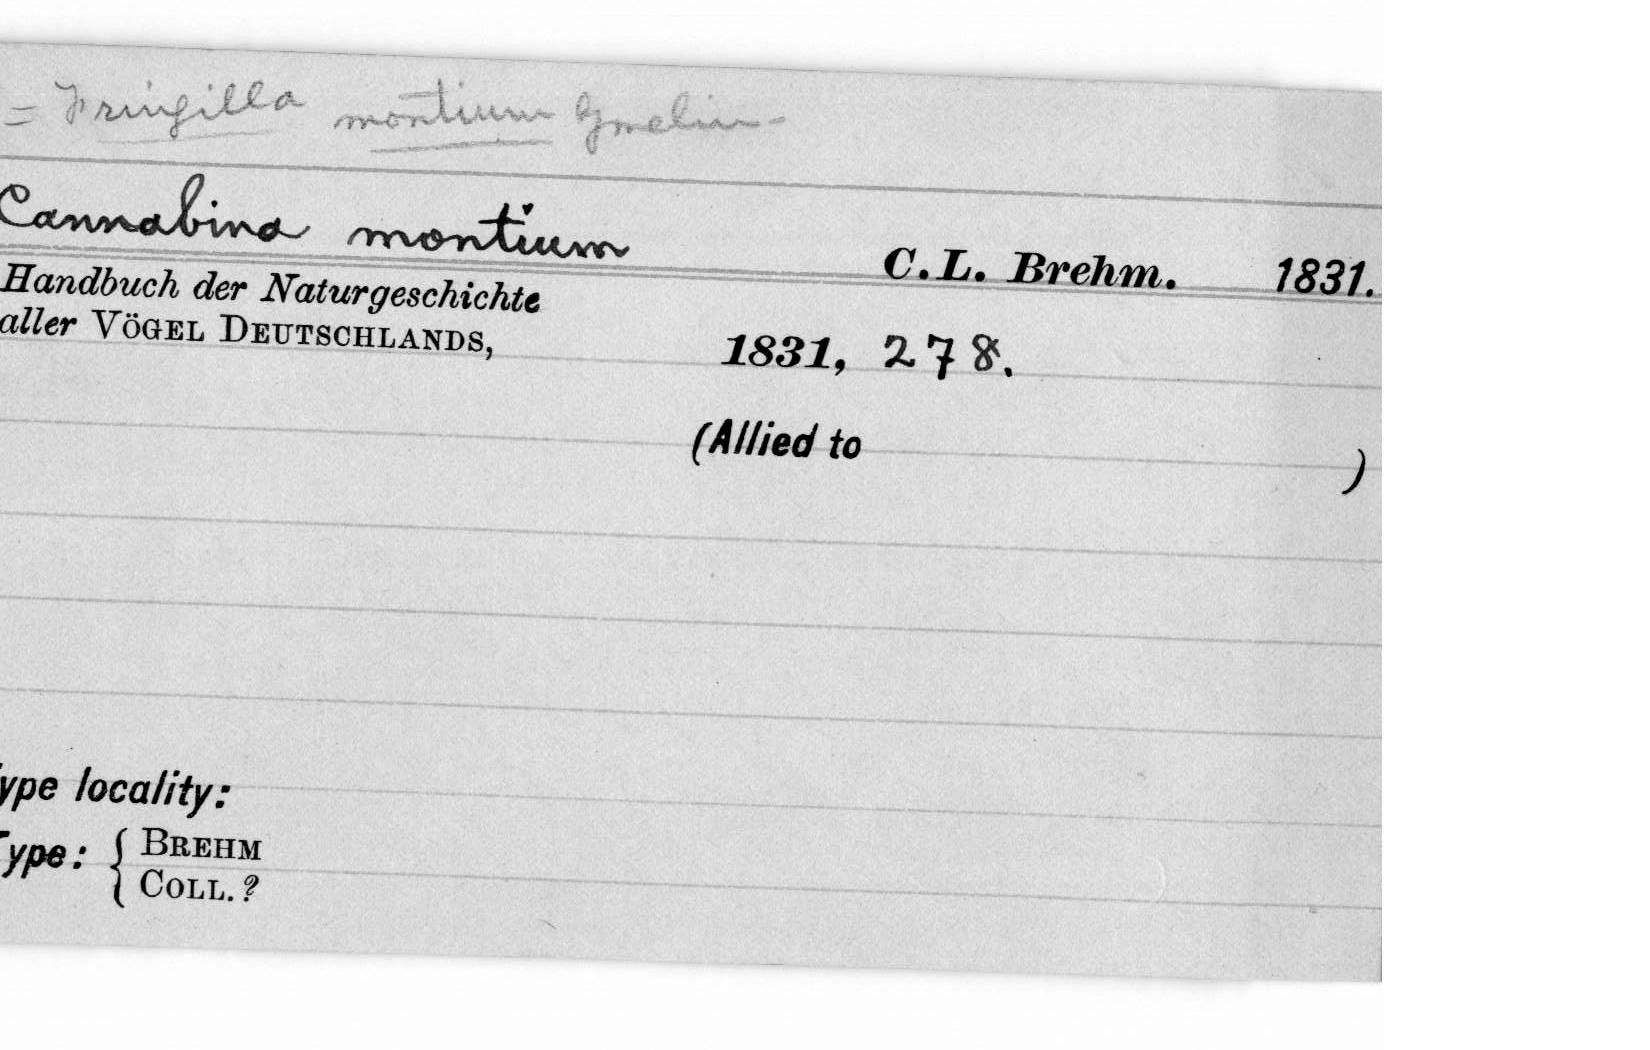 = Fringilla montium Gmelin -
Cannabina montium C. L. Brehm. 1831.
Handbuch der Naturgeschichte
aller VÖGEL DEUTSCHLANDS, 1831, 278.
(Allied to )
ype locality:
Type: { BREHM
COLL. ?